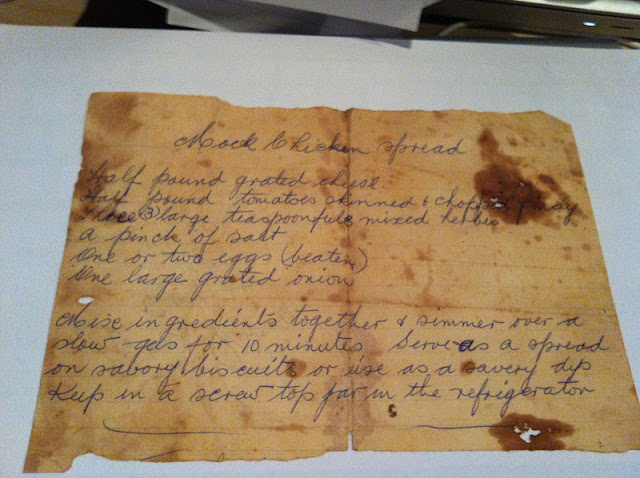 Mock Chicken Spread
Half pound grated cheese
Half pound tomatoes skinned & chopped finely
Three (3) large teaspoonfuls mixed herbs
a pinch of salt
One or two eggs (beaten)
One large grated onion
Mixe ingredients together & simmer over a
slow gas for 10 minutes Serve as a spread
on savory biscuits or use as a savery dip
Keep in a screw top jar in the refrigerator